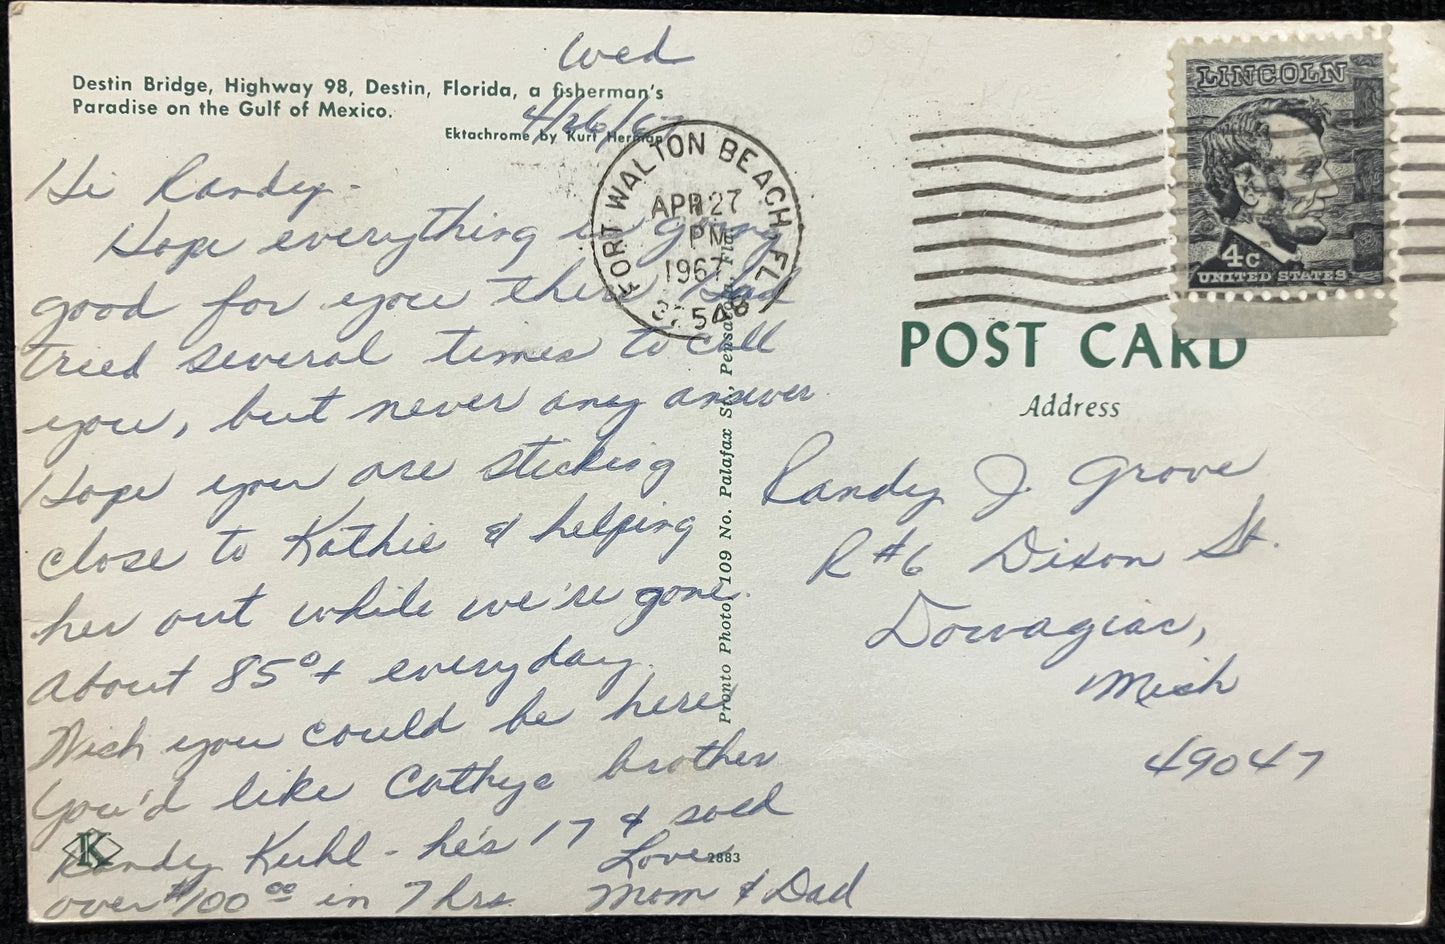 Wed
4/26/67
Destin Bridge, Highway 98, Destin, Florida, a fisherman's
Paradise on the Gulf of Mexico.
Ektachrome by Kurt Herman
Hi Randy -
Hope everything is going
good for you there Dad
tried several times to call
you, but never any answer.
Hope you are sticking
close to Kathie & helping
her out while we're gone.
About 85°+ everyday.
Wish you could be here
You'd like Cathys brother
Randy Kuhl - he's 17 & sold
over $100.00 in 7 hrs.
Love
Mom & Dad
K
2883
Pronto Photo, 109 No. Palafax St., Pensacola, Fla.
FORT WALTON BEACH, FL
APR 27
PM
1967
32548
LINCOLN
4c
UNITED STATES
POST CARD
Address
Randy J. Grove
R #6 Dixon St.
Dowagiac,
Mich
49047